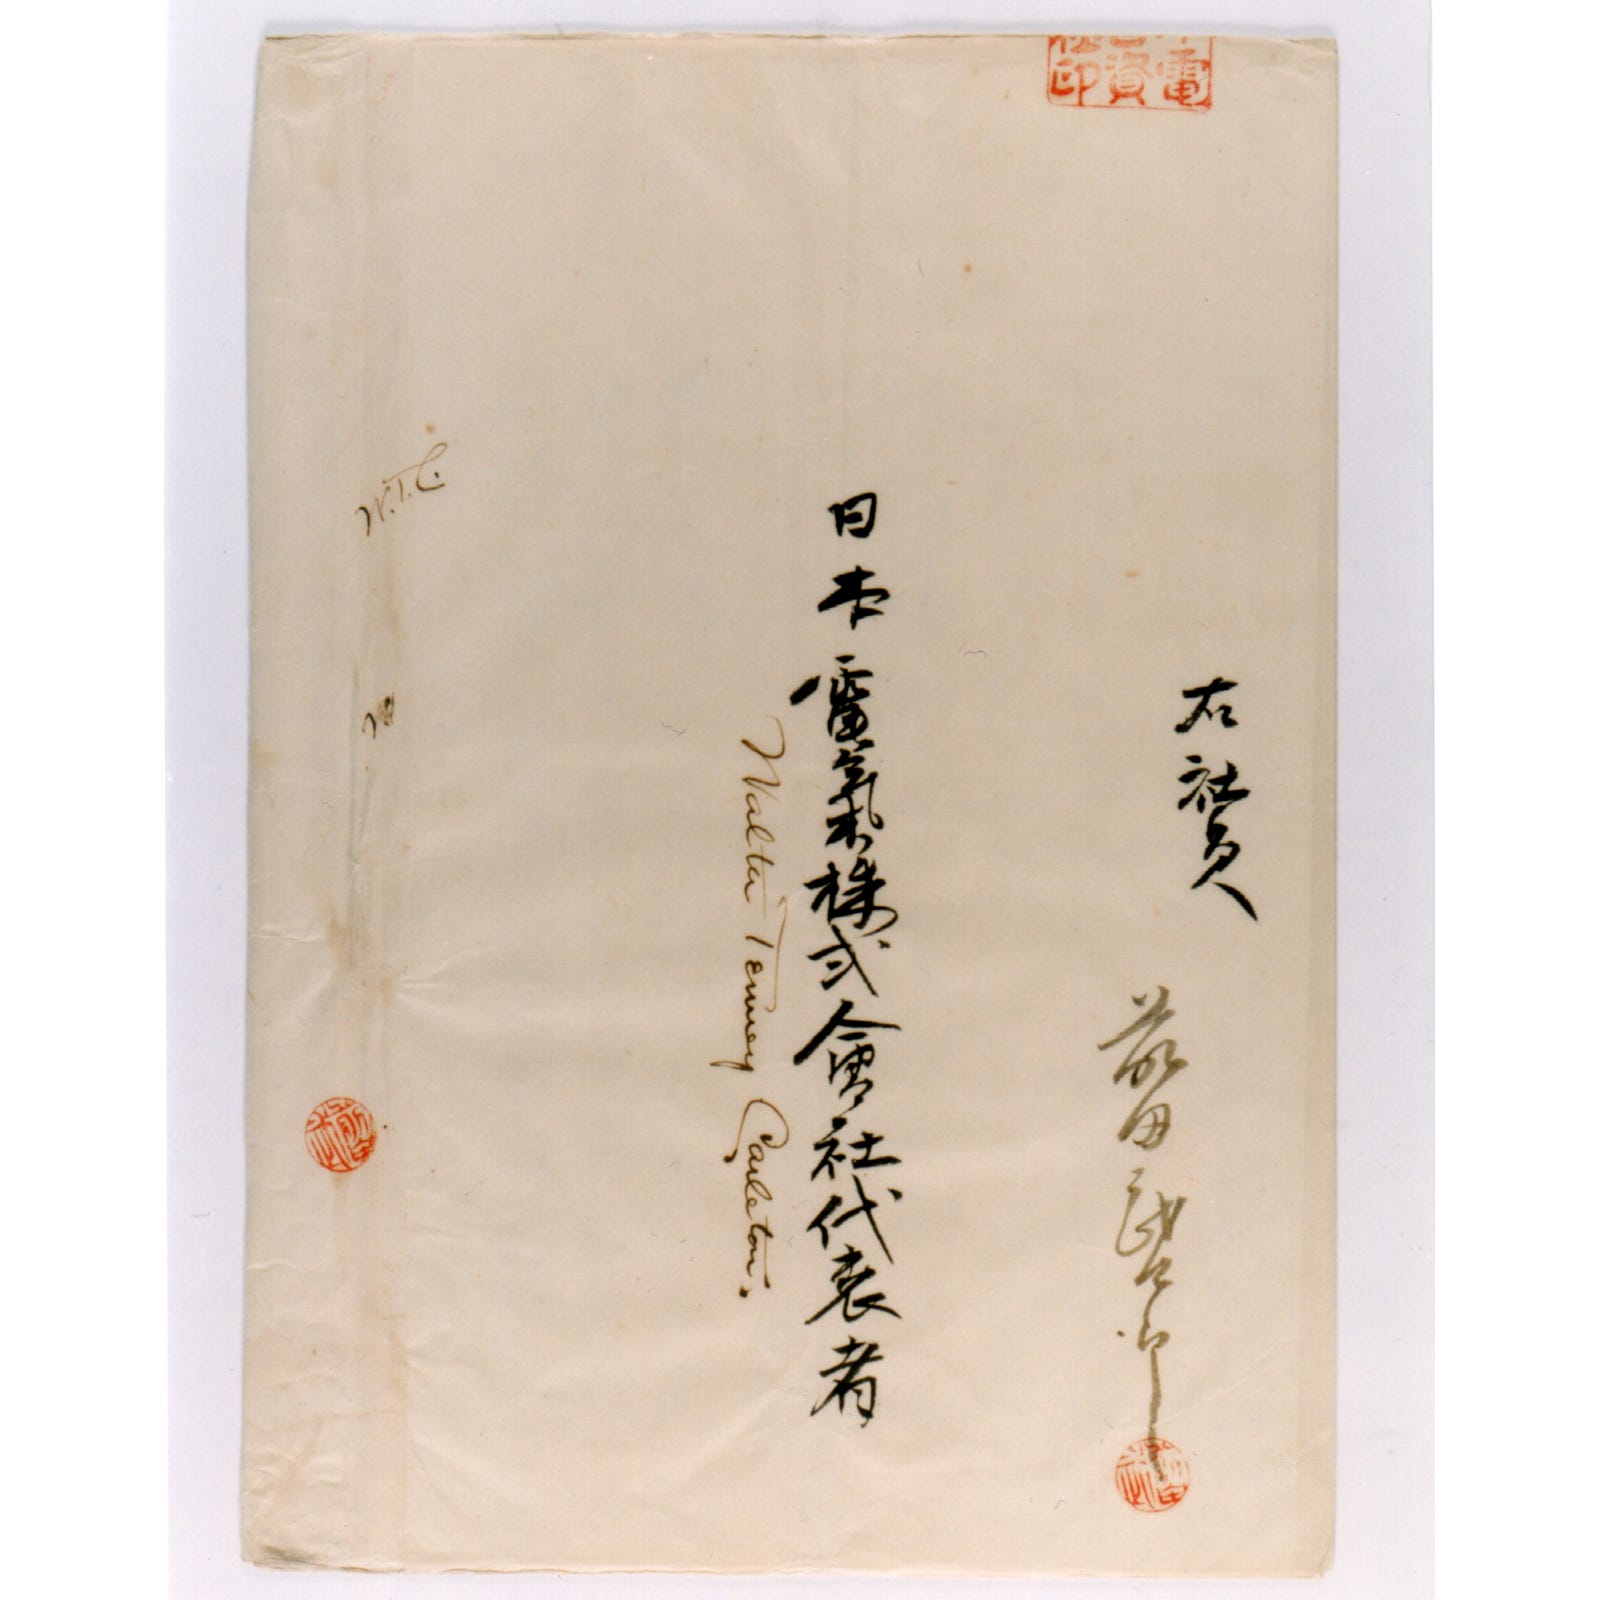 電
資
印
右社員
前田武四郎
日本電氣株式會社代表者
Walter Tenney Carleton.
W.T.C.